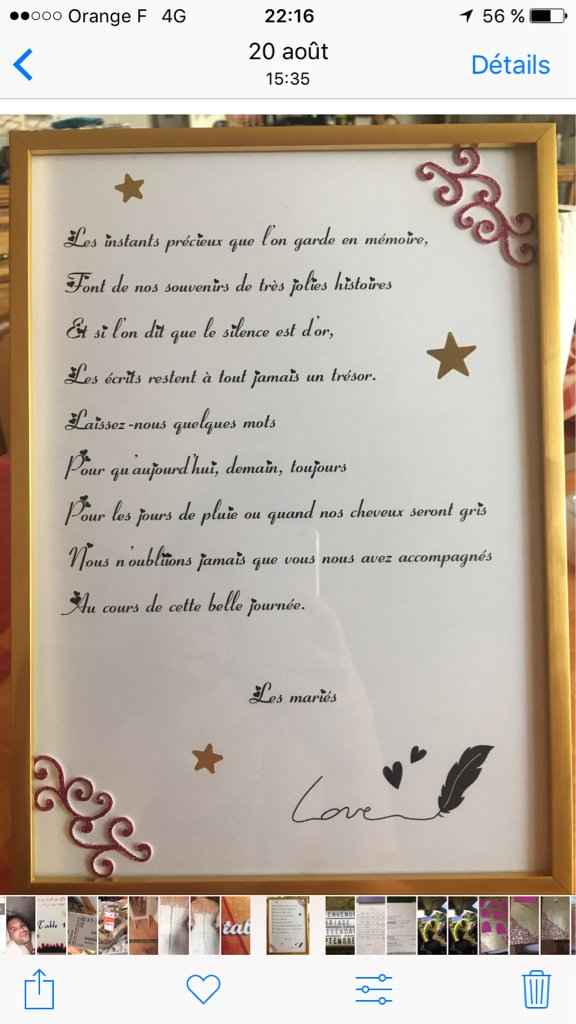 Orange F 4G 22:16 56 %
20 août
15:35
Détails
Les instants précieux que l'on garde en mémoire,
Font de nos souvenirs de très jolies histoires
Et si l'on dit que le silence est d'or,
Les écrits restent à tout jamais un trésor.
Laissez-nous quelques mots
Pour qu'aujourd'hui, demain, toujours
Pour les jours de pluie ou quand nos cheveux seront gris
Nous n'oubliions jamais que vous nous avez accompagnés
Au cours de cette belle journée.
Les mariés
Love
Table